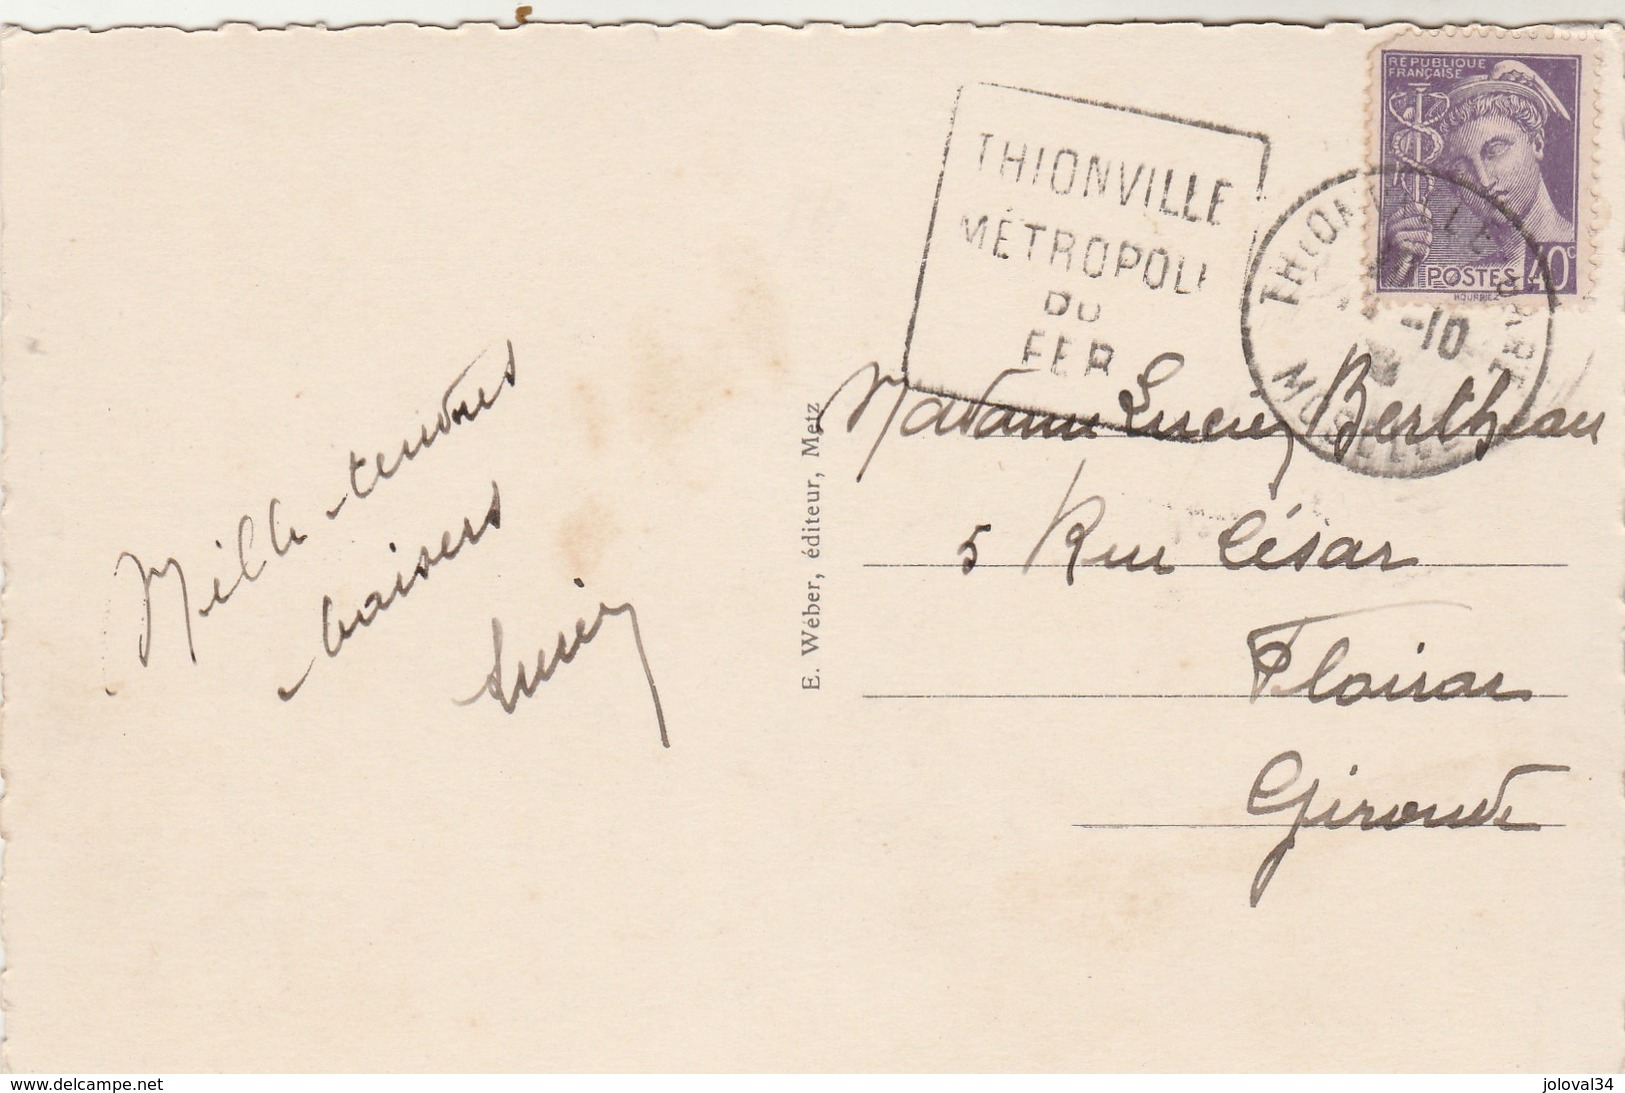 RÉPUBLIQUE
FRANÇAISE
POSTES 40c
HOURRIEZ
THIONVILLE
MÉTROPOLE
DU
FER
THIONVILLE GARE
-10
MOSELLE
Mille tendres
baisers
Lucien
E. Wéber, éditeur, Metz
Madame Lucien Bertheau
5 Rue César
Floirac
Gironde
www.delcampe.net
joloval34